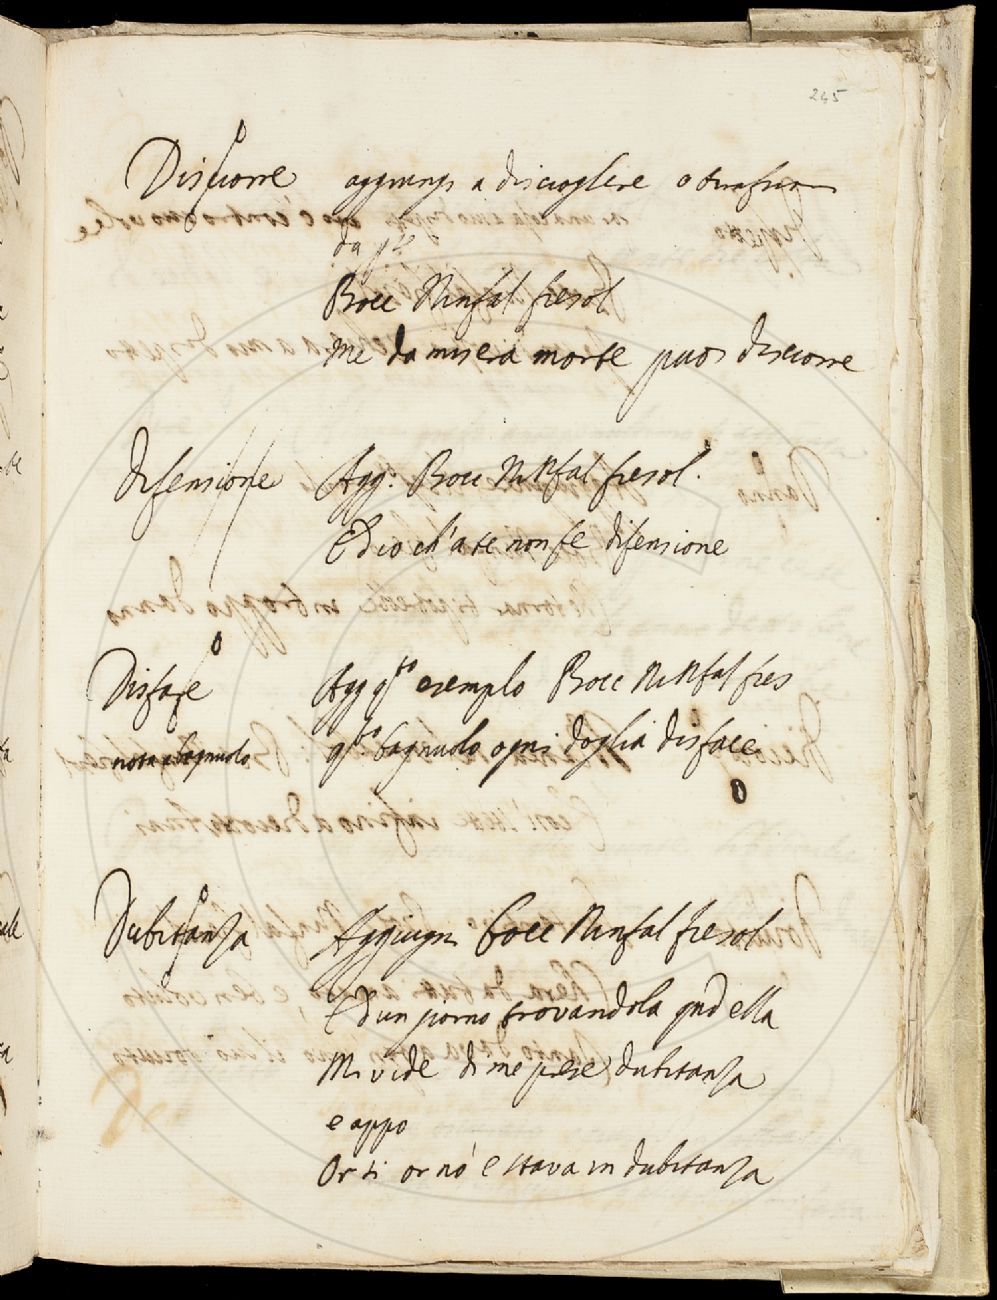 245
Disciorre aggiungi a disciogliere o si rifrisca
da q.to
Bocc Ninfal fiesol
Me da misera morte puoi disciorre
Difensione Agg: Bocc Ninfal fiesol.
Ed io ch'a te non fe difensione
Disfare Agg q.to esempio Bocc Ninfal fies
nota Bagnuolo q.to bagnuolo ogni doglia disface
Dubitanza Aggiugni bocc Ninfal fiesol
Ed un giorno trovandola qnd ella
Mi vide di me prese dubitanza
e appo
Or sì or nò e stava in dubitanza